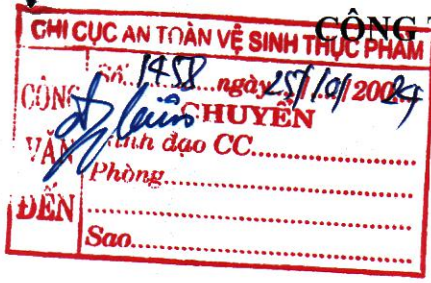 CÔNG T
CHI CỤC AN TOÀN VỆ SINH THỰC PHẨM
CÔNG VĂN ĐẾN
Số. 1458 ngày 25/10/20024
CHUYỂN
Lãnh đạo CC
Phòng
Sao